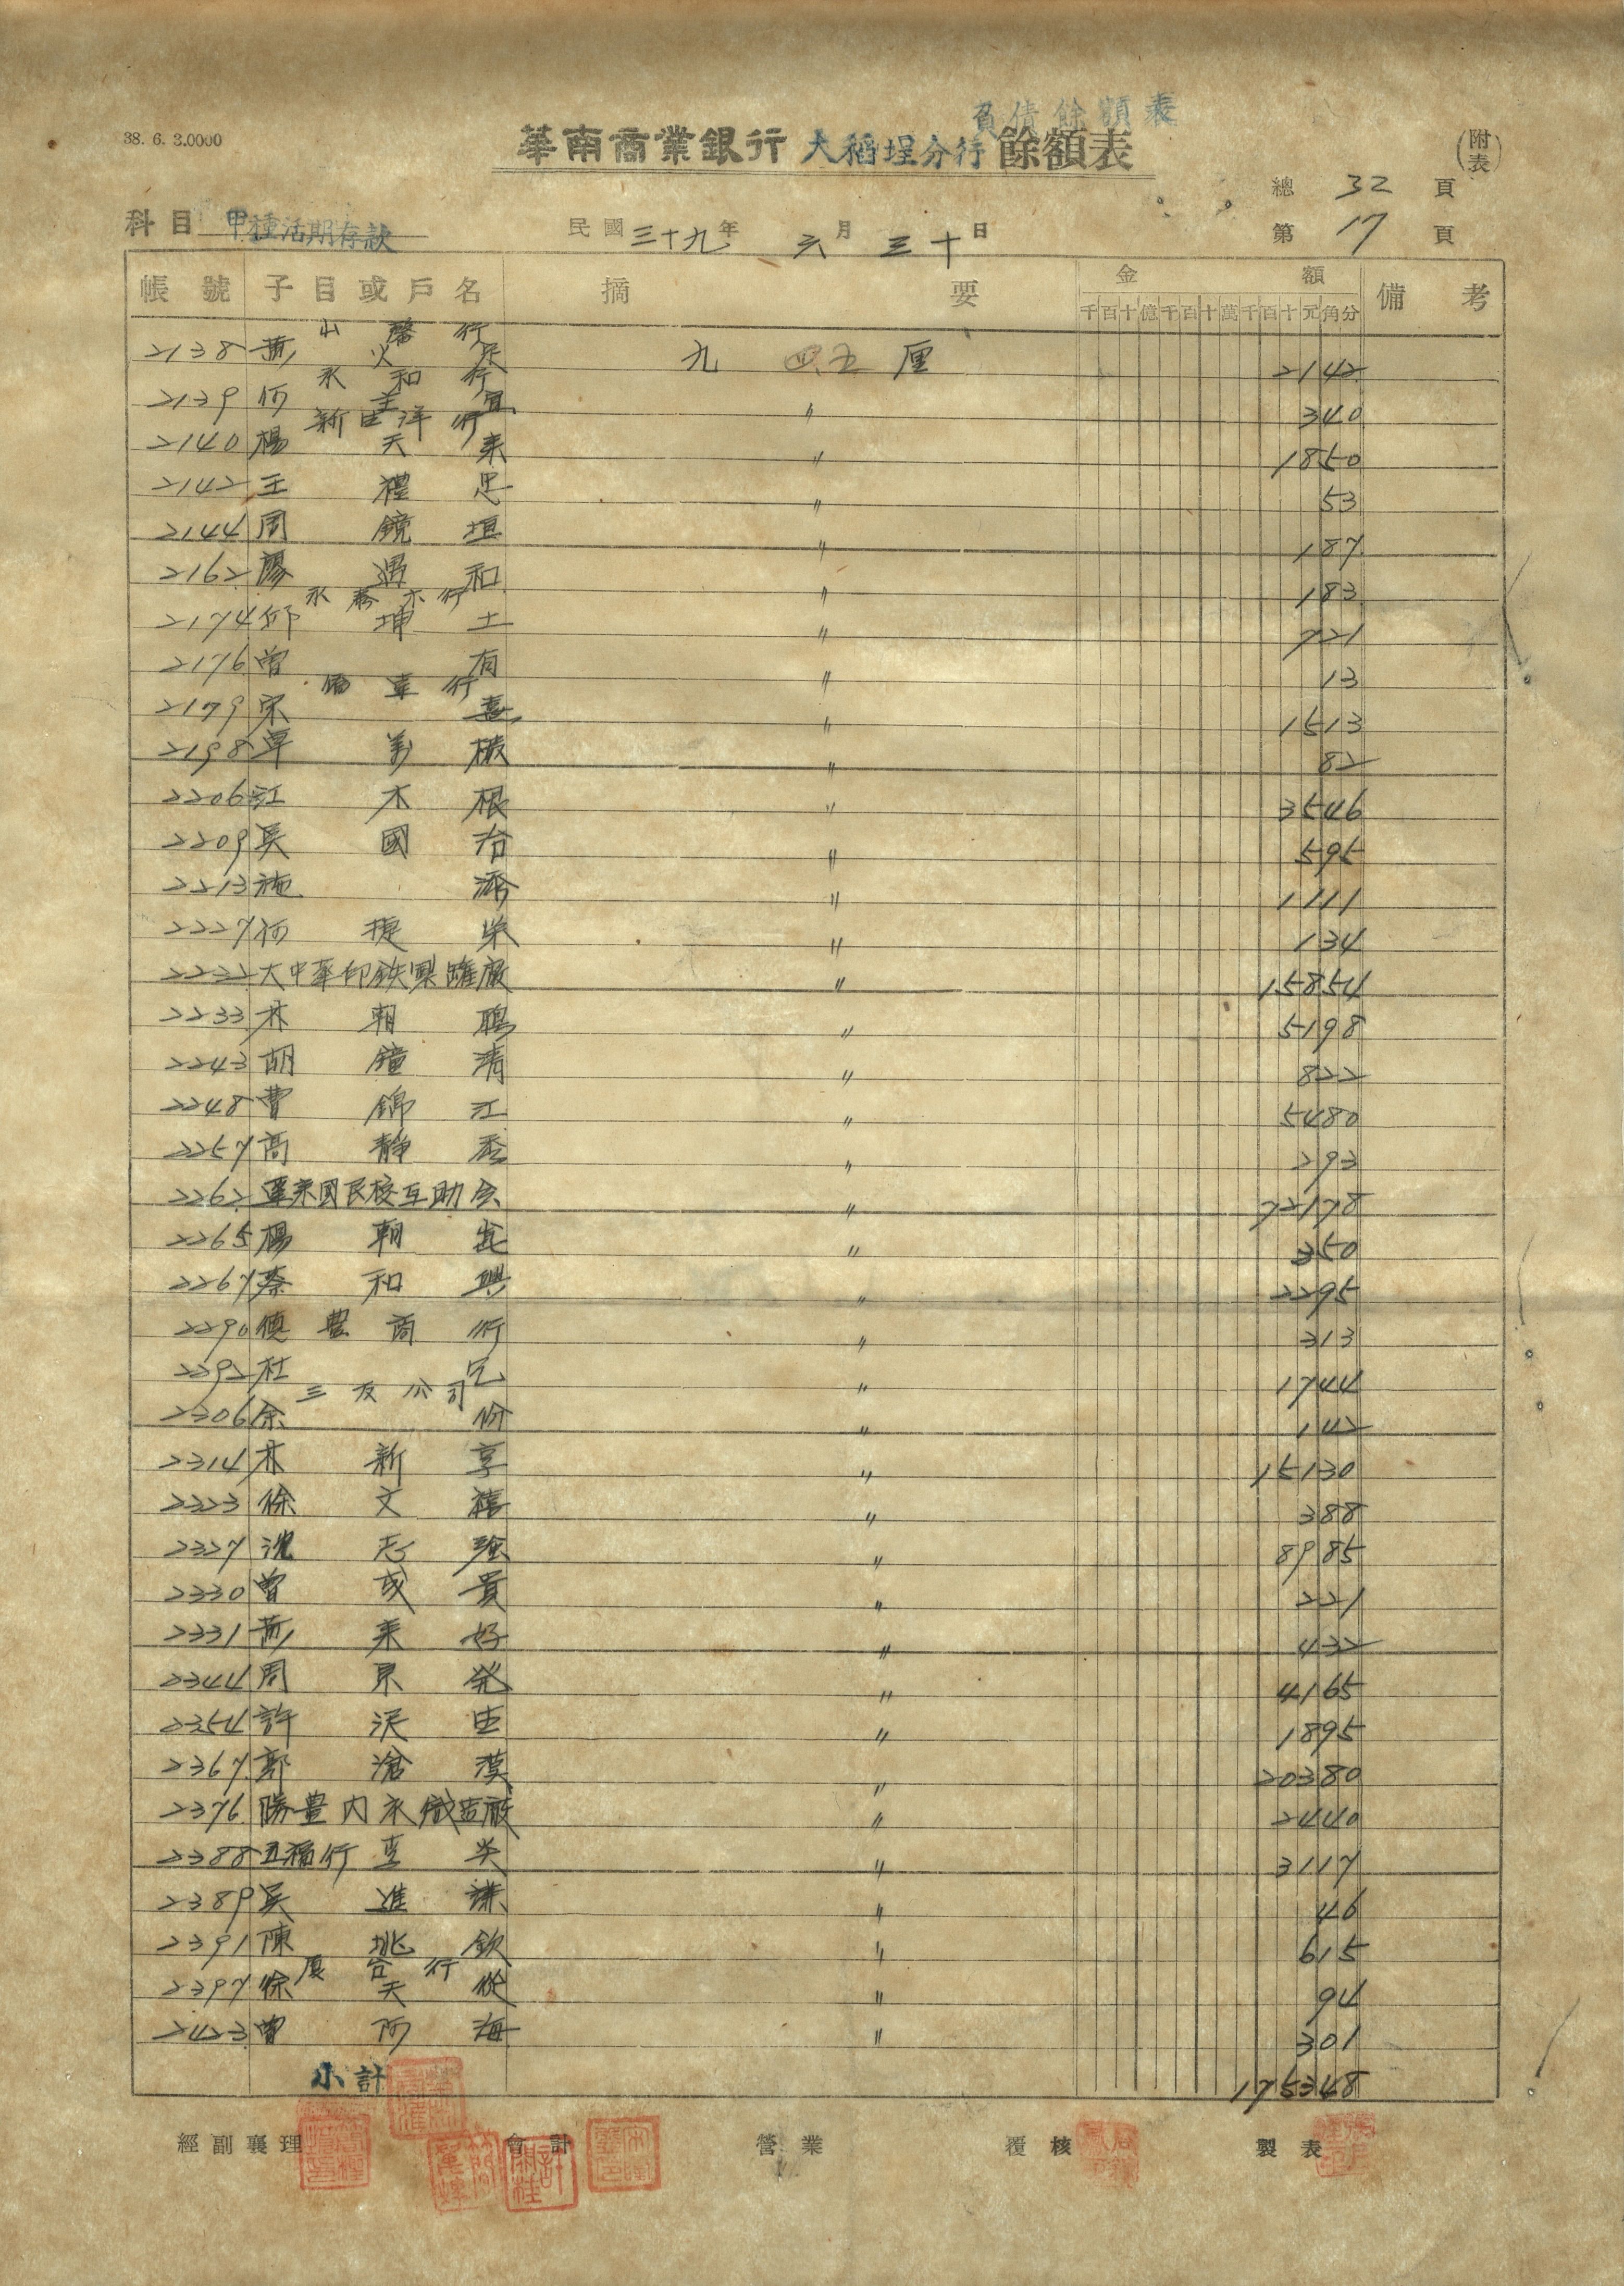 負債餘額表
38. 6. 3.0000
華南商業銀行 大稻埕分行 餘額表
(附表)
總 32 頁
科目 甲種活期存款 民國三十九年 六月 三十日 第 17 頁
帳號 子目或戶名 摘要 金額 備考
千百十億千百十萬千百十元角分
行
2138 黃火 九 四五 厘 2142
永和行
2139 何 宜 〃 340
新 洋行
2140 楊天來 〃 1850
2142 王禮忠 〃 53
2144 周鏡垣 〃 187
2162 和 〃 183
永 木行
2174 邱坤土 〃 721
2176 曾有 〃 13
行
2179 宋 〃 1513
2198 〃 82
2206 江木根 〃 3546
2209 吳國治 〃 595
2213 施 〃 1111
2227 何捷 〃 134
2232 大中華印鉄製罐廠 〃 15854
2233 林朝鵬 〃 5198
2243 胡鐘清 〃 822
2248 曹錦江 〃 5480
2257 高靜 〃 293
2262 蓬萊國民校互助会 〃 72178
2265 楊朝 〃 350
2267 蔡和興 〃 2295
2290 德豊商行 〃 313
2292 杜 〃 1744
三友公司
2306 余份 〃 142
2314 林新享 〃 15130
2323 徐文禧 〃 388
2327 沈志強 〃 8985
2330 曾成貴 〃 221
2331 黃來好 〃 432
2344 周 発 〃 4165
2354 許 〃 1895
2367 郭滄漢 〃 20380
2376 勝豊內衣織造廠 〃 2440
2388 五福行 〃 3117
2389 吳進謙 〃 46
2391 陳 欽 〃 615
厦台行
2397 徐天 〃 94
2423 曾阿海 〃 301
小計 175348
經副襄理 會計 營業 覆核 製表